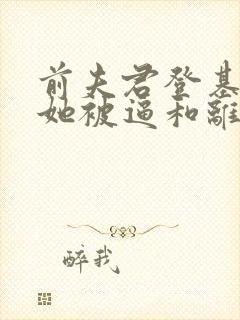 前夫君登基
她被逼和離
醉我